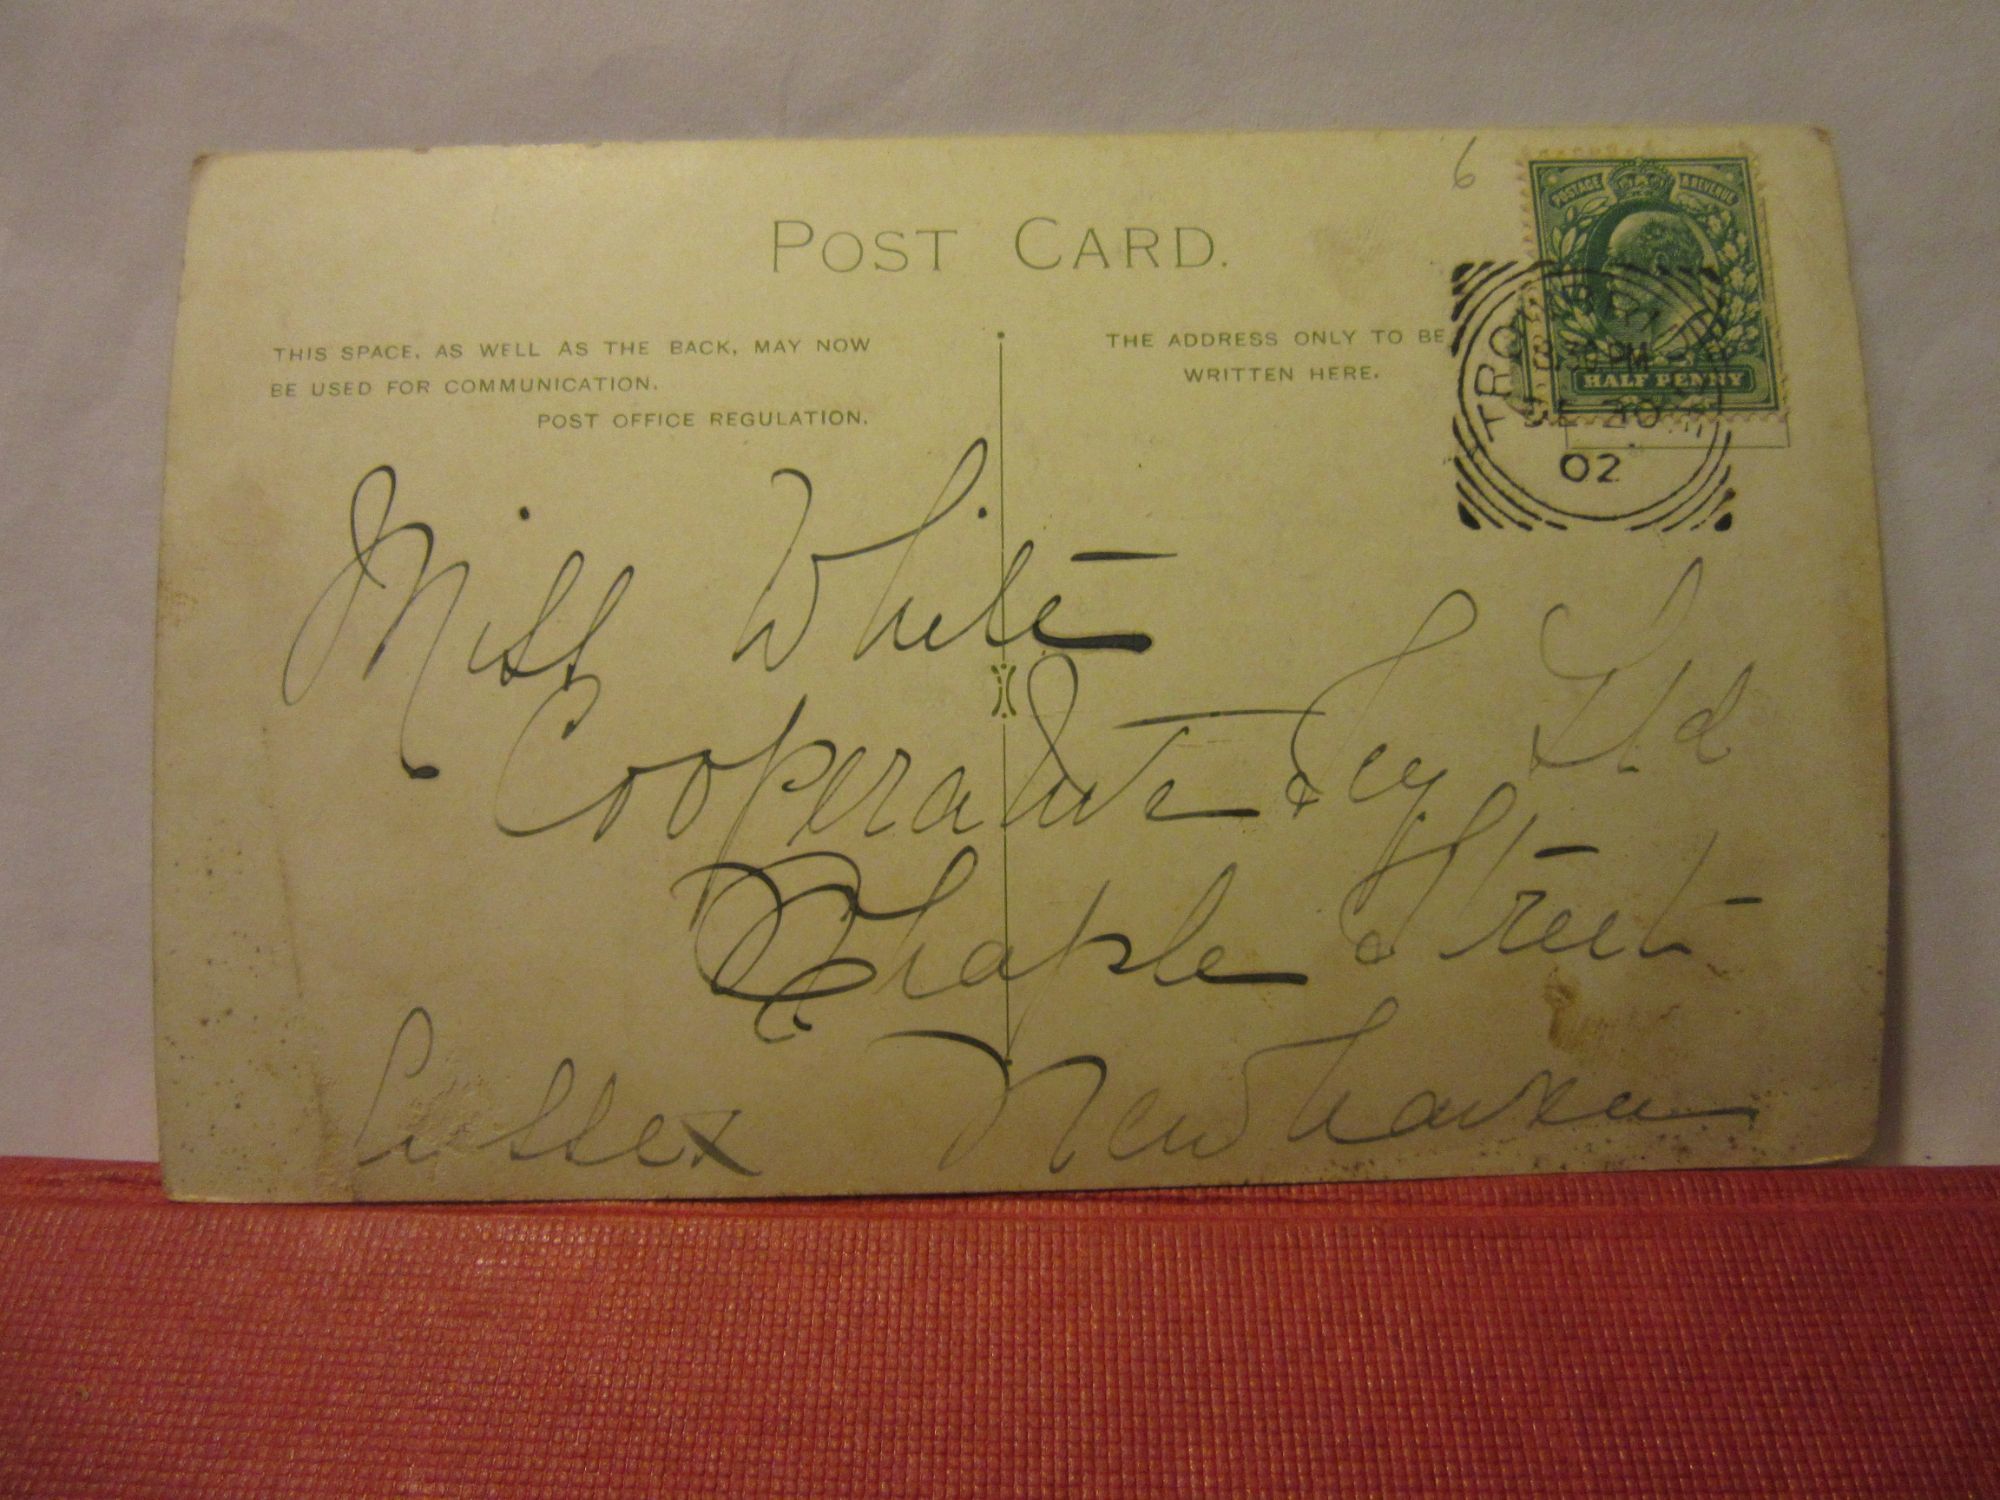 6
POSTAGE & REVENUE
POST CARD.
THIS SPACE, AS WELL AS THE BACK, MAY NOW
BE USED FOR COMMUNICATION.
POST OFFICE REGULATION.
THE ADDRESS ONLY TO BE
WRITTEN HERE.
HALF PENNY
30 PM
SE 20
02
Miss White
Cooperative Scy Ltd
Chaple Street
Sussex Newhaven